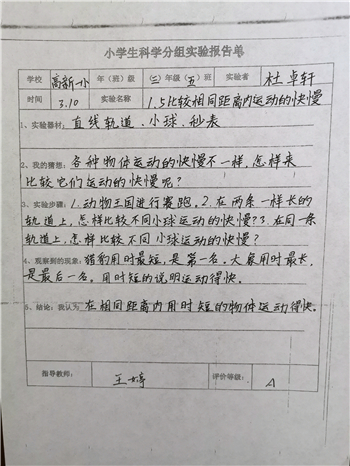 小学生科学分组实验报告单
学校 高新一小 年（班）级 （三）年级（五）班 实验者 杜卓轩
时间 3.10 实验名称 1.5比较相同距离内运动的快慢
1、实验器材：直线轨道、小球、秒表
2、我的猜想：各种物体运动的快慢不一样，怎样来
比较它们运动的快慢呢？
3、实验步骤：1.动物王国进行赛跑。2.在两条一样长的
轨道上，怎样比较不同小球运动的快慢？3.在同一条
轨道上，怎样比较不同小球运动的快慢？
4、观察到的现象：猎豹用时最短，是第一名。大象用时最长，
是最后一名。用时短的说明运动得快。
5、结论：我认为 在相同距离内用时短的物体运动得快。
指导教师： 王婷 评价等级： A